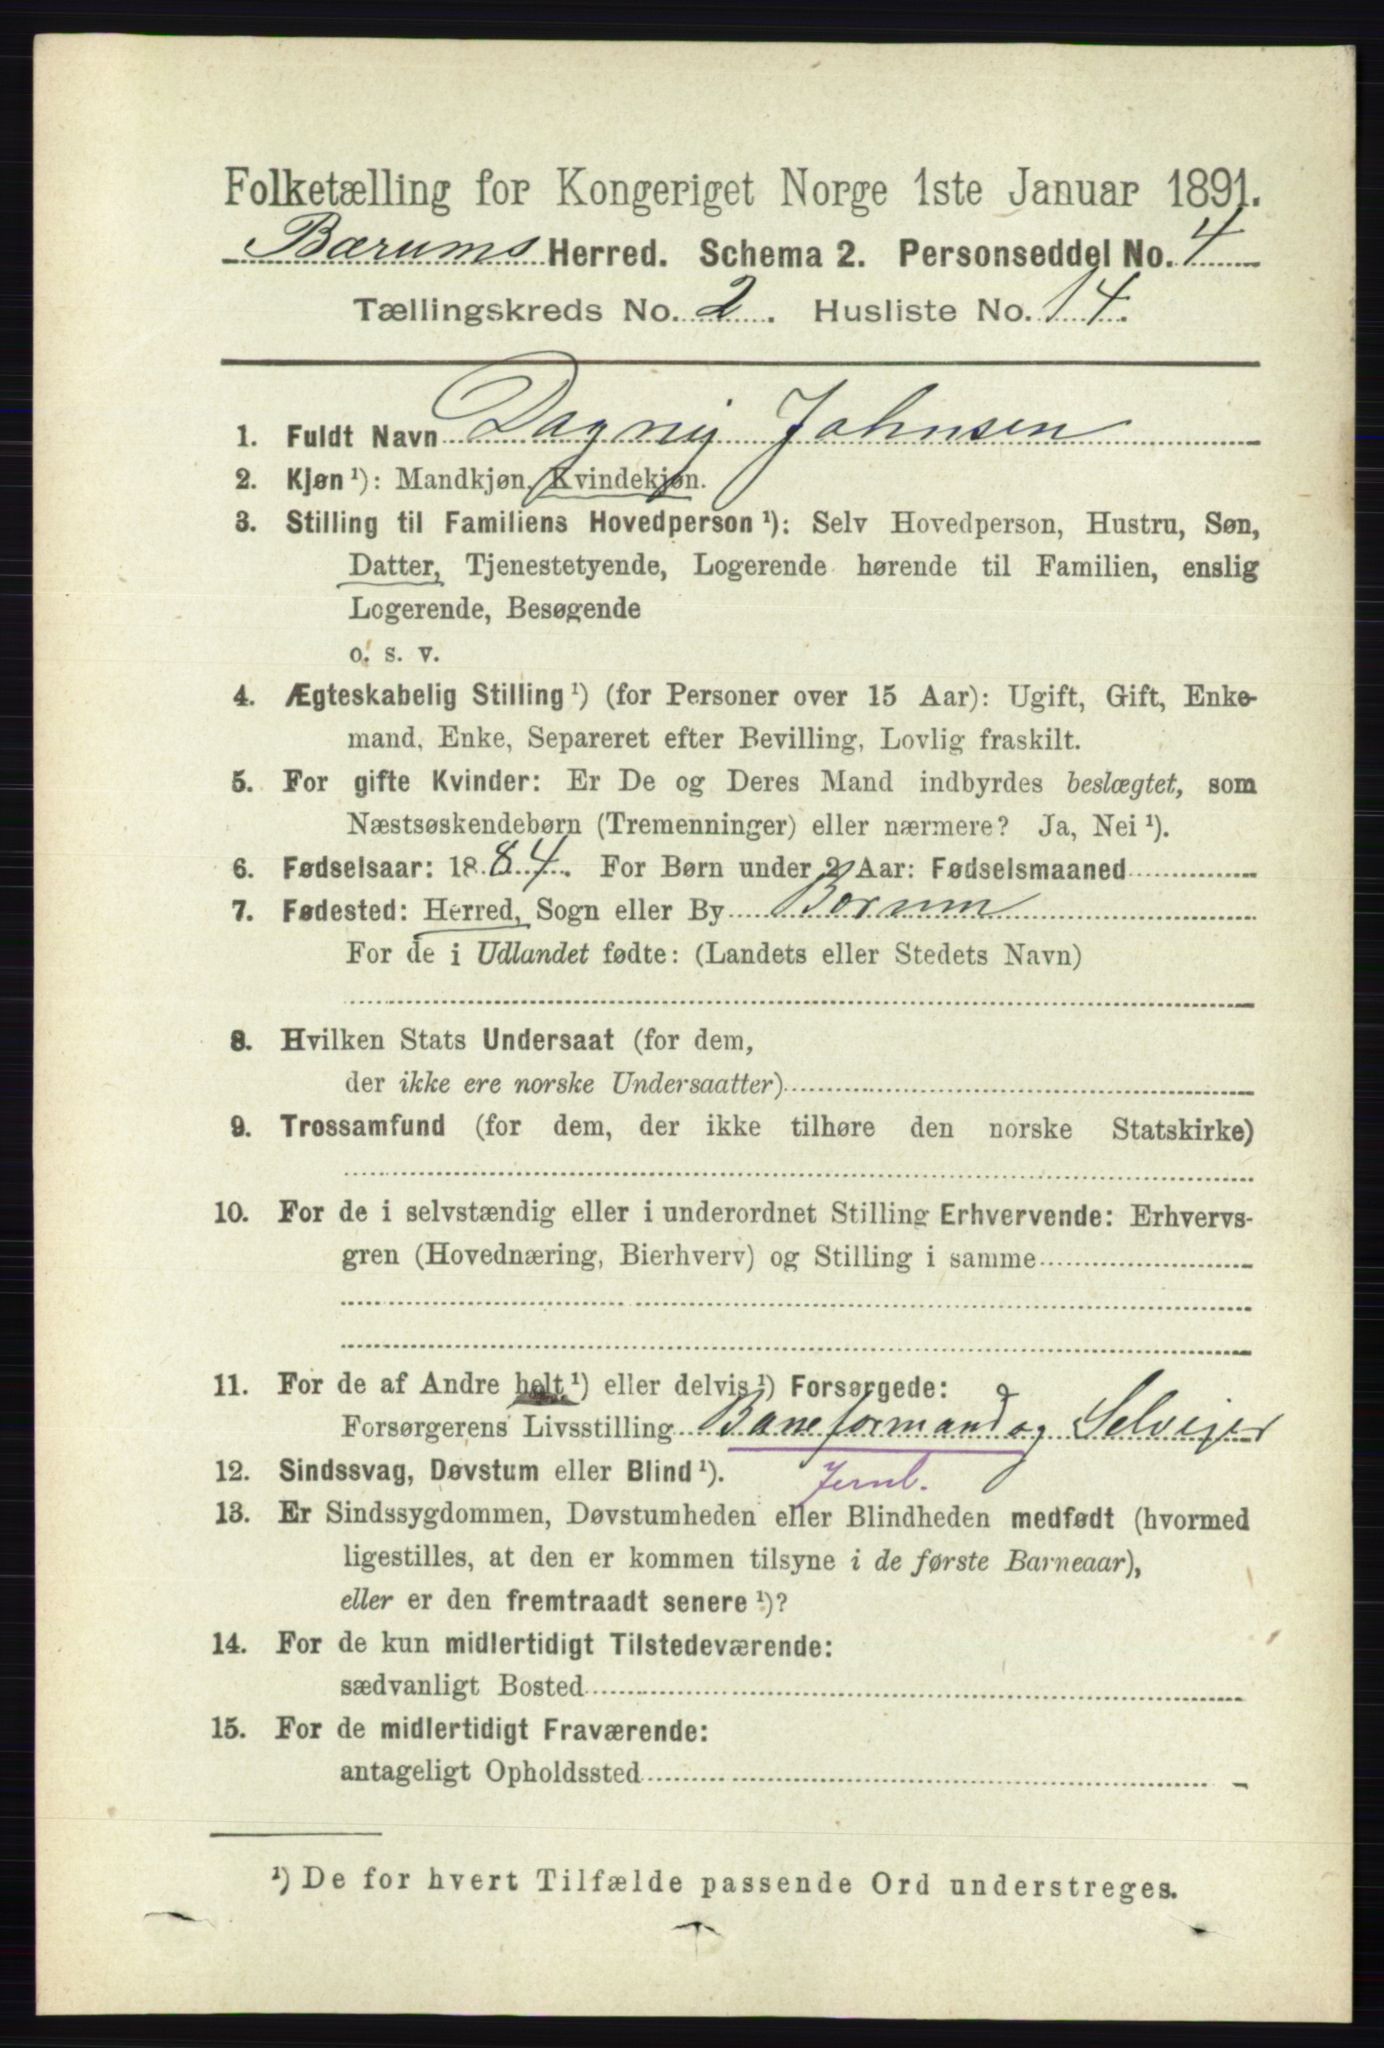 Folketælling for Kongeriget Norge 1ste Januar 1891.
Bærums Herred. Schema 2. Personseddel No. 4
Tællingskreds No. 2. Husliste No. 14.
1. Fuldt Navn Dagny Johnsen
2. Kjøn ¹): Mandkjøn, Kvindekjøn.
3. Stilling til Familiens Hovedperson ¹): Selv Hovedperson, Hustru, Søn,
Datter, Tjenestetyende, Logerende hørende til Familien, enslig
Logerende, Besøgende
o. s. v.
4. Ægteskabelig Stilling ¹) (for Personer over 15 Aar): Ugift, Gift, Enke-
mand, Enke, Separeret efter Bevilling, Lovlig fraskilt.
5. For gifte Kvinder: Er De og Deres Mand indbyrdes beslægtet, som
Næstsøskendebørn (Tremenninger) eller nærmere? Ja, Nei ¹).
6. Fødselsaar: 1884. For Børn under 2 Aar: Fødselsmaaned
7. Fødested: Herred, Sogn eller By Börum
For de i Udlandet fødte: (Landets eller Stedets Navn)
8. Hvilken Stats Undersaat (for dem,
der ikke ere norske Undersaatter)
9. Trossamfund (for dem, der ikke tilhøre den norske Statskirke)
10. For de i selvstændig eller i underordnet Stilling Erhvervende: Erhvervs-
gren (Hovednæring, Bierhverv) og Stilling i samme
11. For de af Andre helt ¹) eller delvis ¹) Forsørgede:
Forsørgerens Livsstilling Baneformand og Selveier
12. Sindssvag, Døvstum eller Blind ¹). Jernb.
13. Er Sindssygdommen, Døvstumheden eller Blindheden medfødt (hvormed
ligestilles, at den er kommen tilsyne i de første Barneaar),
eller er den fremtraadt senere ¹)?
14. For de kun midlertidigt Tilstedeværende:
sædvanligt Bosted
15. For de midlertidigt Fraværende:
antageligt Opholdssted
¹) De for hvert Tilfælde passende Ord understreges.